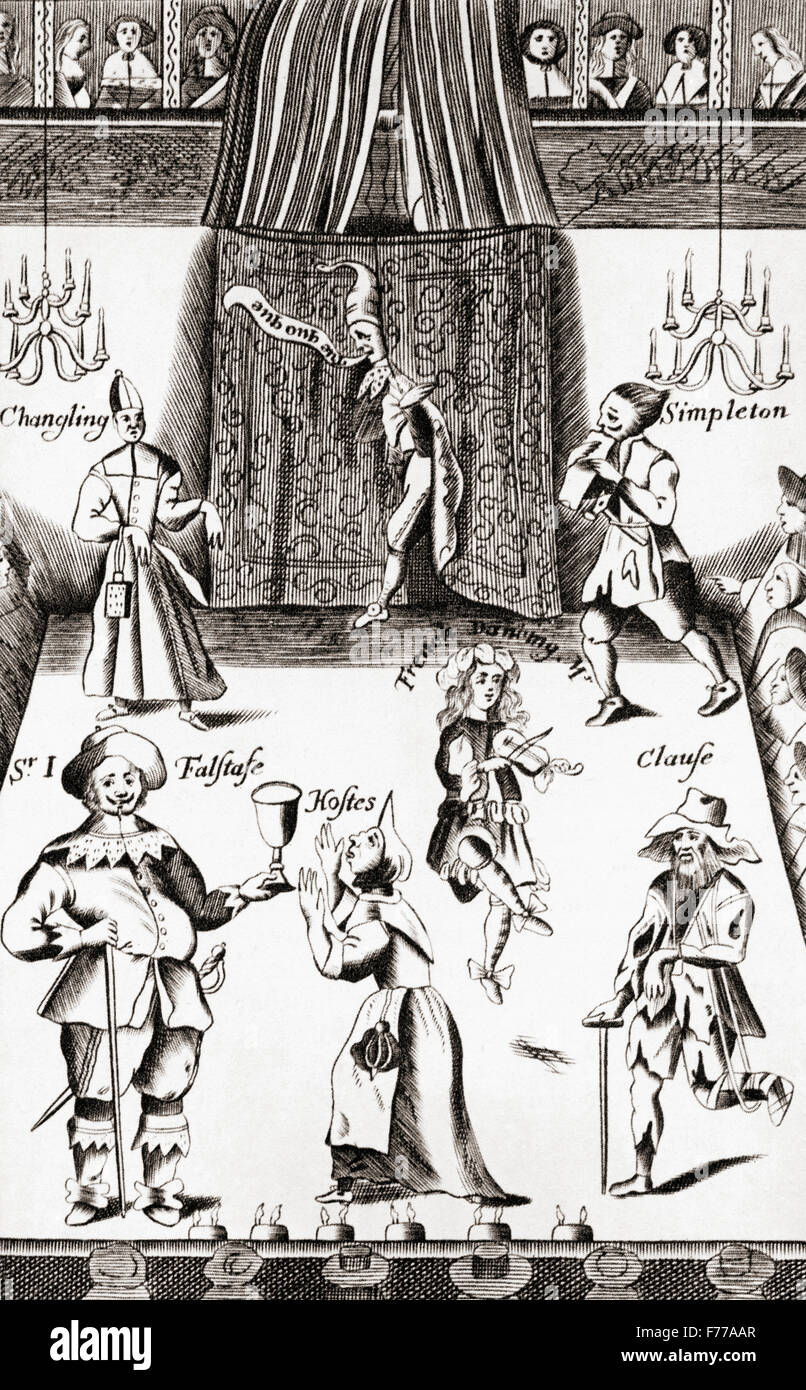 Tu quo que
Changling
Simpleton
French Dancing Mr
Sr I Falstafe
Hostes
Clause
a
alamy stock photo
alamy
F77AAR
www.alamy.com